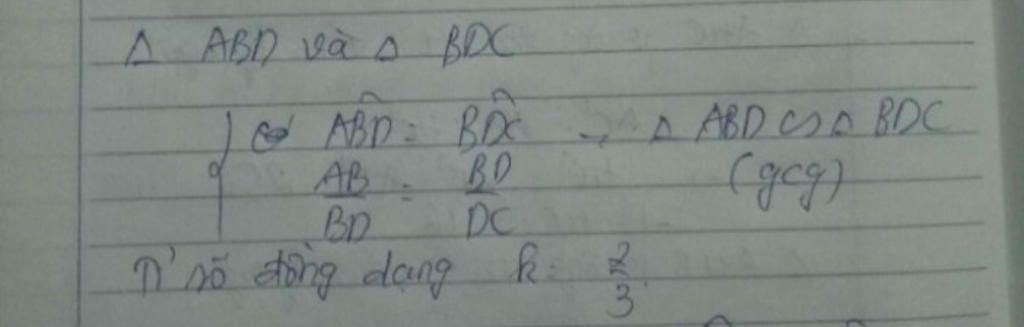 Δ ABD và Δ BDC
{ có ABD̂ = BDĈ → Δ ABD ∽ Δ BDC
AB/BD = BD/DC (gcg)
Tỉ số đồng dạng k = 2/3